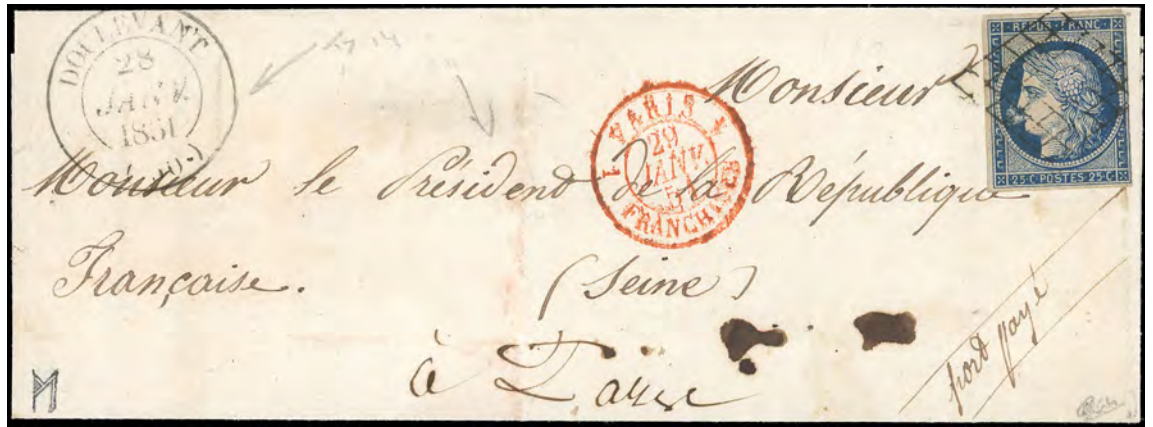 DOULEVANT
28
JANV.
1851
REPUB. FRANC.
25 C POSTES 25 C
PARIS
29
JANV.
51
FRANCHISES
Monsieur
Monsieur le Président de la République
Française. (Seine)
à Paris
port payé